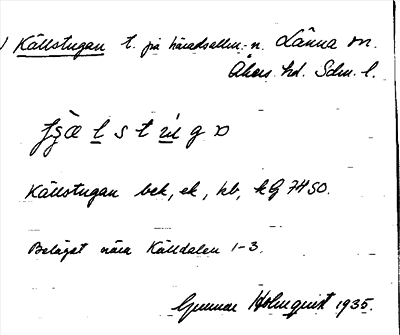 Källstugan t. på häradsallm. n. Länna sn.
Åkers hd. Sdm. l.
Källstugan bek, ek, hb, kG 7450.
Beläget nära Källdalen 1-3.
Gunnar Holmquist 1935.